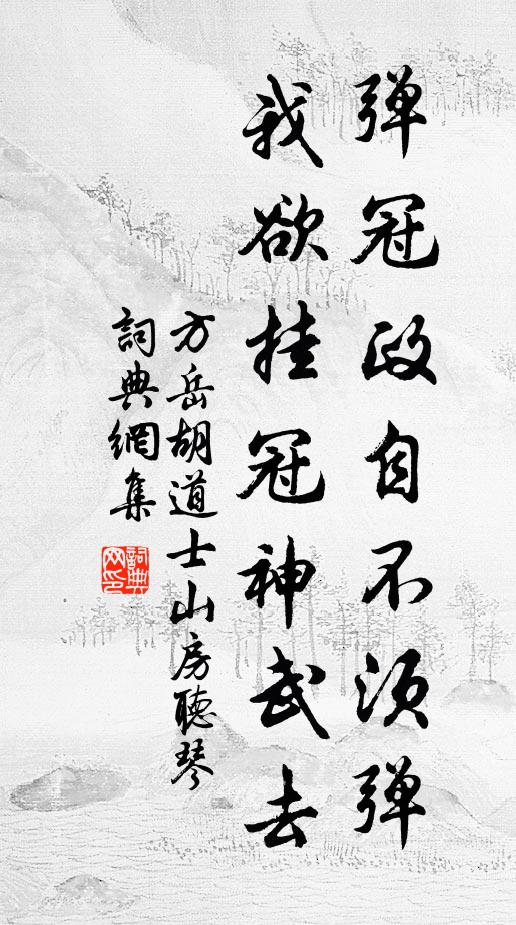 弹冠政自不须弹
我欲挂冠神武去
方岳胡道士山房聽琴
詞典網集
詞典網印